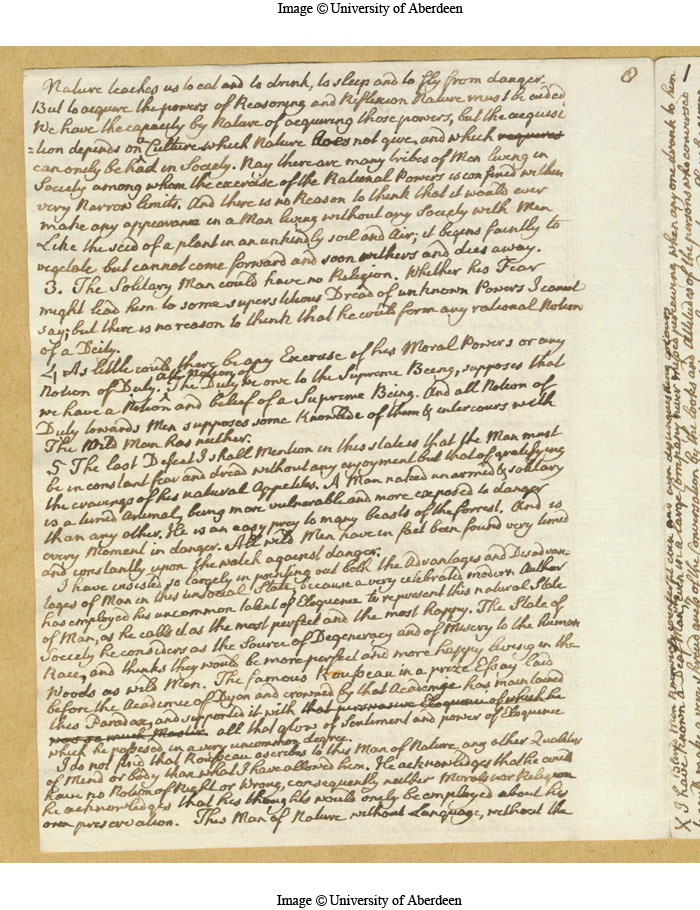 Image © University of Aberdeen
8
Nature teaches us to eat and to drink, to sleep and to fly from danger.
But to acquire the powers of Reasoning and Reflexion Nature must be aided
We have the capacity by Nature of acquiring those powers, but the acquisi
=tion depends on a Culture which Nature does not give, and which requires
can onely be had in Society. Nay there are many tribes of Men living in
Society among whom the exercise of the Rational Powers is confined within
very Narrow limits. And there is no Reason to think that it would ever
make any appearance in a Man living without any Society with Men
Like the seed of a plant in an unkindly soil and Air; it begins faintly to
vegetate but cannot come forward and soon withers and dies away.
3. The Solitary Man could have no Religion. Whether his Fear
might lead him to some superstitious Dread of unknown Powers I cannot
say; but there is no reason to think that he could form any rational Notion
of a Deity.
4 As little could there be any Exercise of his Moral Powers or any
Notion of Duty. all Notion of The Duty we owe to the Supreme Being, supposes that
we have a Notion and belief of a Supreme Being. And all Notion of
Duty towards Men supposes some Knowlede of them & intercours with
The Wild Man has neither.
5 The last Defect I shall Mention in this state is that the Man must
be in constant fear and dread without any enjoyment but that of gratifying
the cravings of his natural Appetites. A Man naked unarmed & solitary
is a timid Animal, being more vulnerable and more exposed to danger
than any other. He is an easy prey to many beasts of the forrest. And is
every Moment in danger. All wild Men have in fact been found very timid
and constantly upon the watch against danger.
I have insisted so largely in pointing out both the Advantages and Disadvan-
tages of Man in this unsocial State, because a very celebrated modern Author
has employed his uncommon talent of Eloquence to represent this natural State
of Man, as he calls it as the most perfect and the most happy. The State of
Society he considers as the Source of Degeneracy and of Misery to the human
Race, and thinks they would be more perfect and more happy living in the
Woods as wild Men. The famous Rousseau in a prize Essay laid
before the Academie of Dyon and crowned by that Academie has maintained
this Paradox, and supported it with that persuasive Eloquence of which he
was so much Master all that glow of Sentiment and power of Eloquence
which he possesed in a very uncommon degree.
I do not find that Rousseau ascribes to this Man of Nature any other Qualities
of Mind or body than what I have allowed him. He acknowledges that he could
have no Notion of Right or Wrong, consequently neither Morals nor Religion
he acknowledges that his thoughts would onely be employed about his
own preservation. This Man of Nature without Language, without the
X I have known a Deaf Man, even in a large company never miss perceiving when any one drank to him
Image © University of Aberdeen